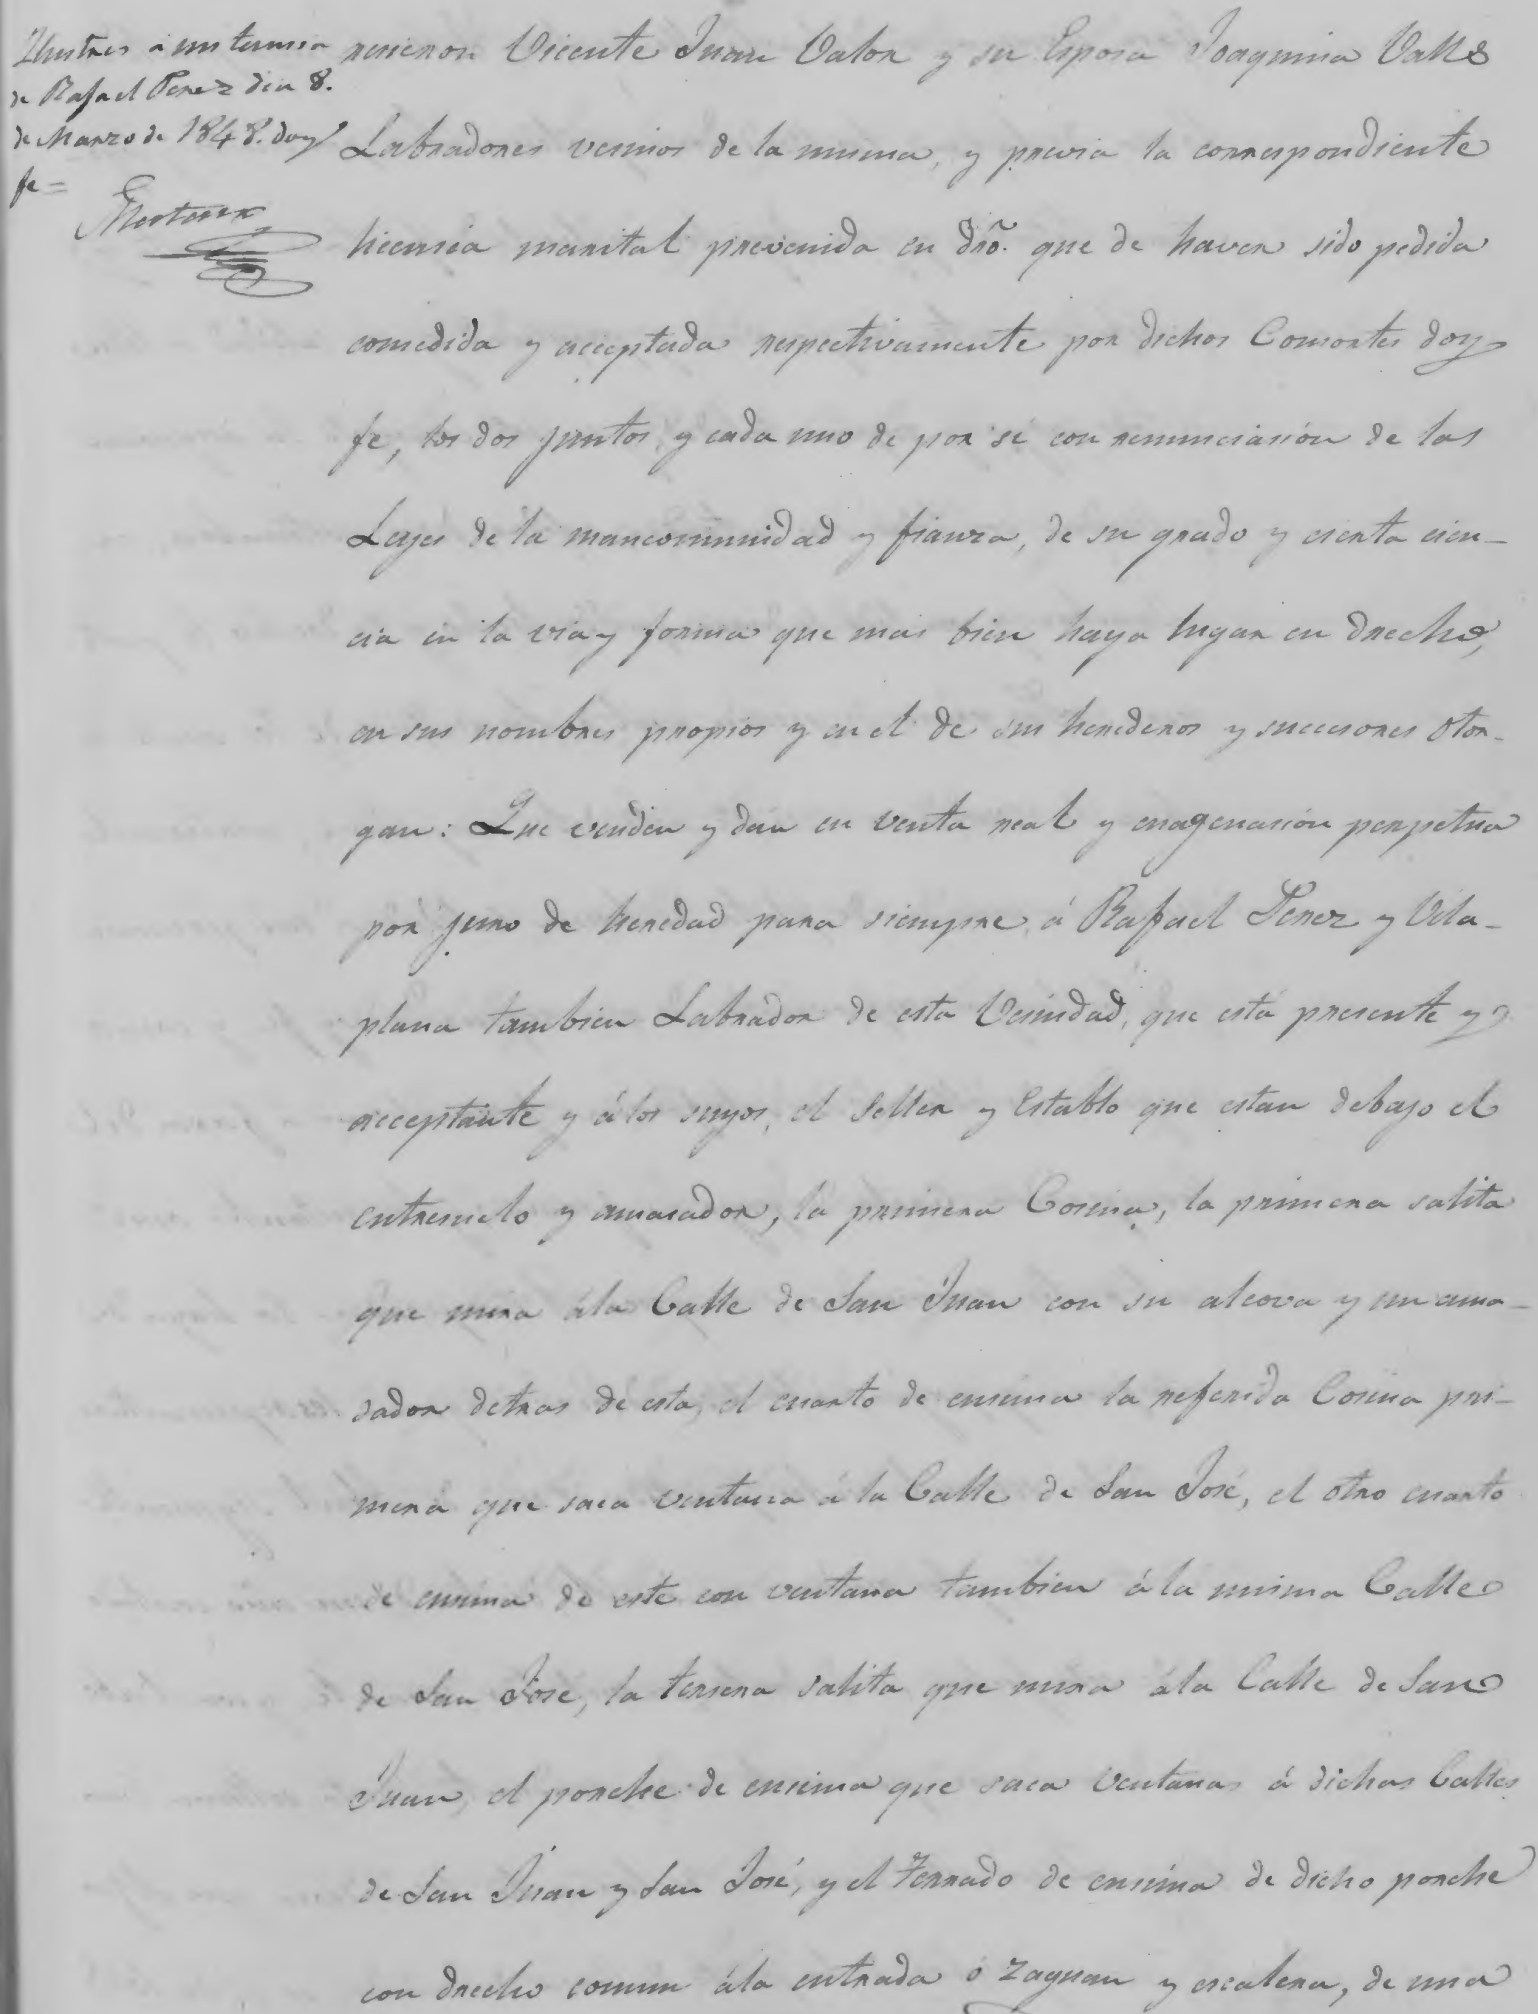 á instancia
de Rafael Perez dia 8.
de Marzo de 1848. doy
fe =
recieron Vicente Juan Valor y su Esposa Joaquina Valls
Labradores vecinos de la misma, y previa la correspondiente
licencia marital prevenida en dro. que de haver sido pedida
concedida y acceptada respectivamente por dichos Consortes doy
fe, los dos juntos y cada uno de por si con renunciasión de las
Leyes de la mancomunidad y fianza, de su grado y cierta cien-
cia en la via y forma que mas bien haya lugar en drecho,
en sus nombres propios y en el de sus herederos y successores otor-
gan: Que venden y dan en venta real y enagenasión perpetua
por juro de heredad para siempre á Rafael Perez y Vila-
plana tambien Labrador de esta Vesindad, que está presente y
acceptante y á los suyos, el Seller y Establo que estan debajo el
entresuelo y amasador, la primera Cosina, la primera salita
que mira ála Calle de San Juan con su alcova y un ama-
sador detras de esta, el cuarto de ensima la referida Cosina pri-
mera que saca ventana á la Calle de San José, el otro cuarto
de ensima de este con ventana tambien á la misma Calle
de San José, la tersera salita que mira ála Calle de San
Juan, el porche de ensima que saca ventanas á dichas Calles
de San Juan y San José, y el Terrado de ensima de dicho porche
con drecho comun ála entrada ó zaguan y escalera, de una